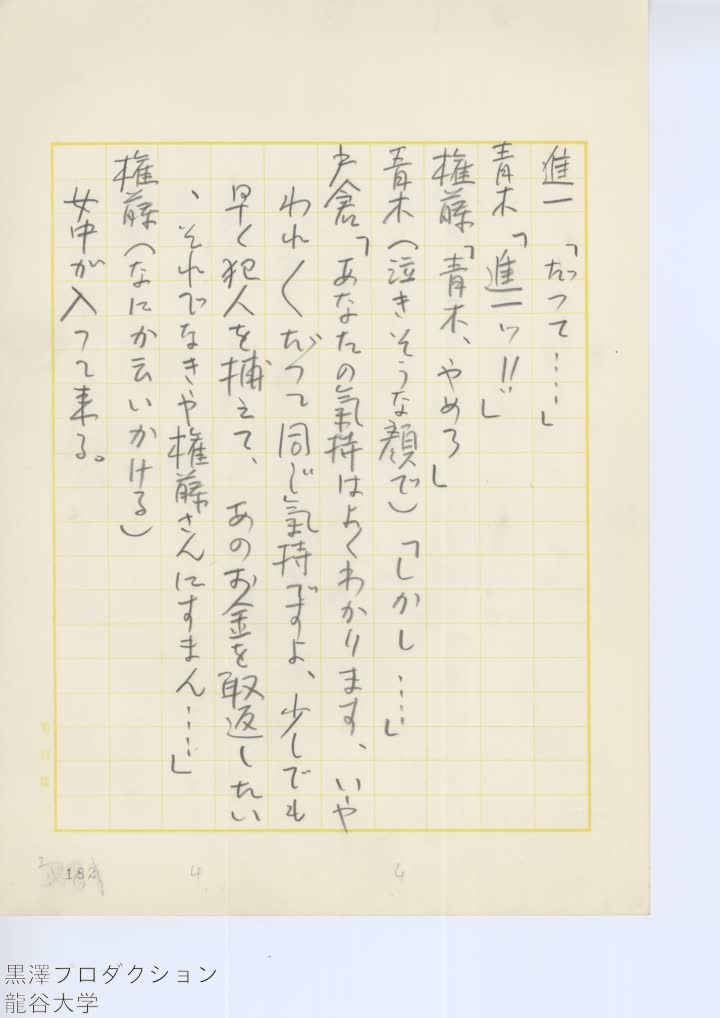 進一「だって……」
青木「進一ッ!!」
権藤「青木、やめろ」
青木(泣きそうな顔で)「しかし……」
戸倉「あなたの氣持はよくわかります、いや
われ〳〵だって同じ氣持ですよ、少しでも
早く犯人を捕えて、あのお金を取返したい
、それでなきや権藤さんにすまん……」
権藤(なにか云いかける)
女中が入って来る。
182
4
黒澤プロダクション
龍谷大学